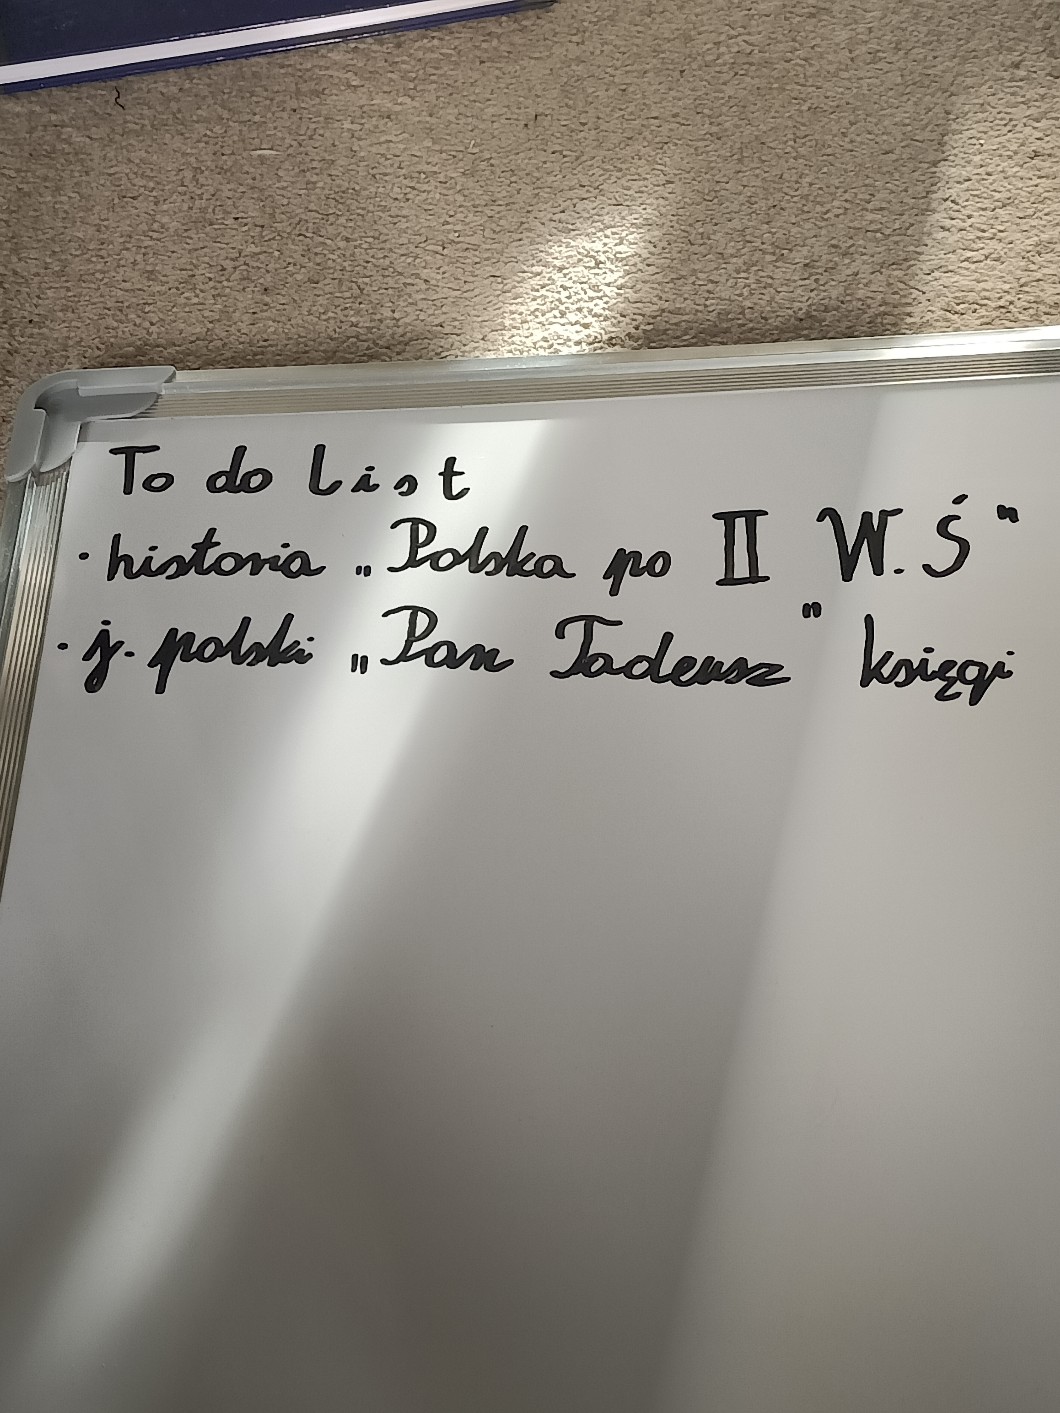 To do List
· historia „Polska po II W. Ś"
· j. polski „Pan Tadeusz" księgi